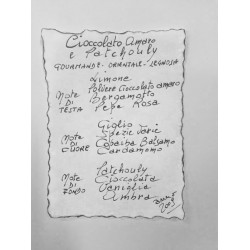 Cioccolato Amaro
e Patchouly
GOURMANDE - ORIENTALE - LEGNOSA
Limone
Polvere Cioccolato amaro
Note DI TESTA
Bergamotto
Pepe Rosa
Giglio
Spezie varie
Note DI CUORE
Copaiba Balsamo
Cardamomo
Patchouly
Note DI FONDO
Cioccolata
Vaniglia
Ambra